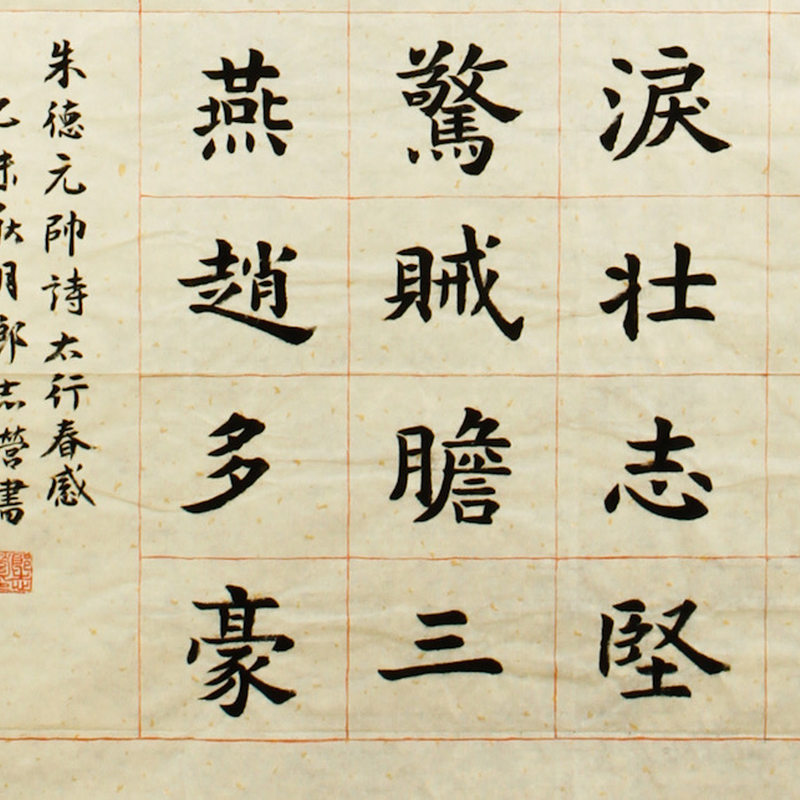 淚壯志堅
驚賊膽三
燕趙多豪
朱德元帥詩太行春感
乙未秋月志營書